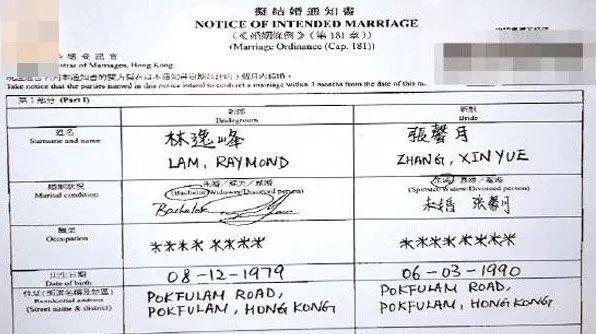 擬結婚通知書
NOTICE OF INTENDED MARRIAGE
(《婚姻條例》(第181章))
(Marriage Ordinance (Cap. 181))
of Marriages, Hong Kong
Take notice that the parties named in this notice intend to contract a marriage within 3 months from the date of this
第1部分 (Part I)
新郎 新娘
Bridegroom Bride
姓名
林逸峰 張馨月
Surname and name
LAM, RAYMOND ZHANG, XINYUE
婚姻狀況
Marital condition
(Bachelor/Widower/Divorced person) (Spinster/Widow/Divorced person)
Bachelor 未婚 張馨月
職業
Occupation
***** **** ***** ****
出生日期
Date of birth
08-12-1979 06-03-1990
Residential address
(Street name & district)
POKFULAM ROAD, POKFULAM ROAD,
POKFULAM, HONG KONG POKFULAM, HONG KONG